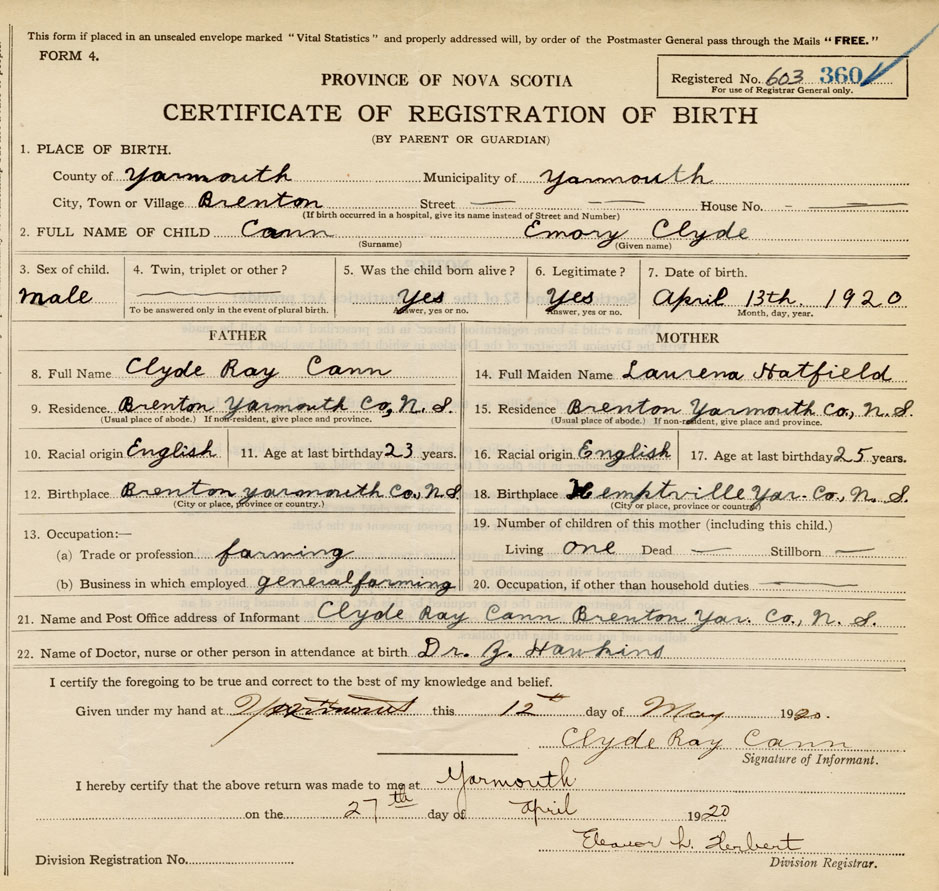 This form if placed in an unsealed envelope marked "Vital Statistics" and properly addressed will, by order of the Postmaster General pass through the Mails "FREE."
FORM 4.
Registered No. 603 360
For use of Registrar General only.
PROVINCE OF NOVA SCOTIA
CERTIFICATE OF REGISTRATION OF BIRTH
(BY PARENT OR GUARDIAN)
1. PLACE OF BIRTH.
County of Yarmouth Municipality of Yarmouth
City, Town or Village Brenton Street — — House No. - —
(If birth occurred in a hospital, give its name instead of Street and Number)
2. FULL NAME OF CHILD Cann Emory Clyde
(Surname) (Given name)
3. Sex of child. 4. Twin, triplet or other? 5. Was the child born alive? 6. Legitimate? 7. Date of birth.
Male — Yes Yes April 13th. 1920
To be answered only in the event of plural birth. Answer, yes or no. Answer, yes or no. Month, day, year.
FATHER MOTHER
8. Full Name Clyde Ray Cann 14. Full Maiden Name Laurena Hatfield
9. Residence. Brenton Yarmouth Co, N. S. 15. Residence Brenton Yarmouth Co., N. S.
(Usual place of abode.) If non-resident, give place and province. (Usual place of abode.) If non-resident, give place and province.
10. Racial origin English 11. Age at last birthday 23 years. 16. Racial origin English 17. Age at last birthday 25 years.
12. Birthplace Brenton Yarmouth Co, N. S. 18. Birthplace Kemptville Yar. Co, N. S.
(City or place, province or country.) (City or place, province or country)
13. Occupation:— 19. Number of children of this mother (including this child.)
(a) Trade or profession farming Living one Dead — Stillborn —
(b) Business in which employed general farming 20. Occupation, if other than household duties —
21. Name and Post Office address of Informant Clyde Ray Cann Brenton Yar. Co., N. S.
22. Name of Doctor, nurse or other person in attendance at birth Dr. Z. Hawkins
I certify the foregoing to be true and correct to the best of my knowledge and belief.
Given under my hand at Yarmouth this 12th day of May 1920.
Clyde Ray Cann
Signature of Informant.
I hereby certify that the above return was made to me at Yarmouth
on the 27th day of April 1920
Eleanor L. Herbert
Division Registrar.
Division Registration No.